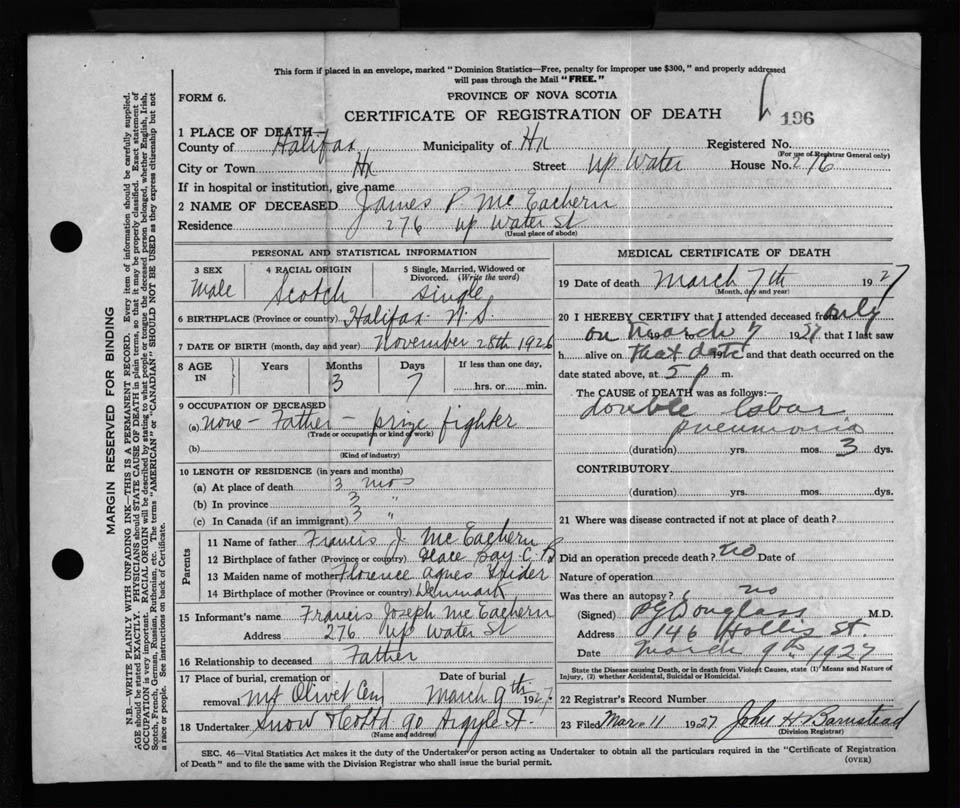 This form if placed in an envelope, marked "Dominion Statistics—Free, penalty for improper use $300," and properly addressed
will pass through the Mail "FREE."
FORM 6.
PROVINCE OF NOVA SCOTIA
CERTIFICATE OF REGISTRATION OF DEATH
196
1 PLACE OF DEATH—
County of Halifax Municipality of Hx Registered No.
(For use of Registrar General only)
City or Town Hx Street Up Water House No. 276
If in hospital or institution, give name
2 NAME OF DECEASED James P McEachern
Residence 276 Up Water St
(Usual place of abode)
PERSONAL AND STATISTICAL INFORMATION
3 SEX Male
4 RACIAL ORIGIN Scotch
5 Single, Married, Widowed or Divorced. (Write the word) Single
6 BIRTHPLACE (Province or country) Halifax N.S.
7 DATE OF BIRTH (month, day and year) November 28th 1926
8 AGE IN Years Months 3 Days 7 If less than one day, ....hrs. or ....min.
9 OCCUPATION OF DECEASED
(a) none - Father - prize fighter
(Trade or occupation or kind of work)
(b)
(Kind of industry)
10 LENGTH OF RESIDENCE (in years and months)
(a) At place of death 3 mos
(b) In province 3 "
(c) In Canada (if an immigrant) 3 "
Parents
11 Name of father Francis J. McEachern
12 Birthplace of father (Province or country) Glace Bay C.B
13 Maiden name of mother Florence Agnes
14 Birthplace of mother (Province or country) Denmark
15 Informant's name Francis Joseph McEachern
Address 276 Up Water St
16 Relationship to deceased Father
17 Place of burial, cremation or
removal Mt Olivet Cem March 9th 1927
18 Undertaker Snow & Co Ltd 90 Argyle St.
(Name and address)
MEDICAL CERTIFICATE OF DEATH
19 Date of death March 7th 1927
(Month, day and year)
20 I HEREBY CERTIFY that I attended deceased from only
on March 7 1927 that I last saw
h alive on that date and that death occurred on the
date stated above, at 5 p m.
The CAUSE of DEATH was as follows:
double lobar
pneumonia
(duration) yrs. mos. 3 dys.
CONTRIBUTORY.
(duration) yrs. mos. dys.
21 Where was disease contracted if not at place of death?
Did an operation precede death? no Date of
Nature of operation
Was there an autopsy? no
(Signed) Douglass M.D.
Address 146 Hollis St.
Date March 9th 1927
State the Disease causing Death, or in death from Violent Causes, state (1) Means and Nature of
Injury, (2) whether Accidental, Suicidal or Homicidal.
22 Registrar's Record Number
23 Filed Mar 11 1927 John H Barnstead
(Division Registrar)
SEC. 46—Vital Statistics Act makes it the duty of the Undertaker or person acting as Undertaker to obtain all the particulars required in the "Certificate of Registration
of Death" and to file the same with the Division Registrar who shall issue the burial permit.
(OVER)
MARGIN RESERVED FOR BINDING
N.B.—WRITE PLAINLY WITH UNFADING INK—THIS IS A PERMANENT RECORD. Every item of information should be carefully supplied.
AGE should be stated EXACTLY. PHYSICIANS should STATE CAUSE OF DEATH in plain terms, so that it may be properly classified. Exact statement of
OCCUPATION is very important. RACIAL ORIGIN will be described by stating to what people, race or tongue the deceased person belonged, whether English, Irish,
Scotch, French, German, Russian, Ruthenian, etc. The terms "AMERICAN" or "CANADIAN" SHOULD NOT BE USED as they express citizenship but not
a race or people. See instructions on back of Certificate.